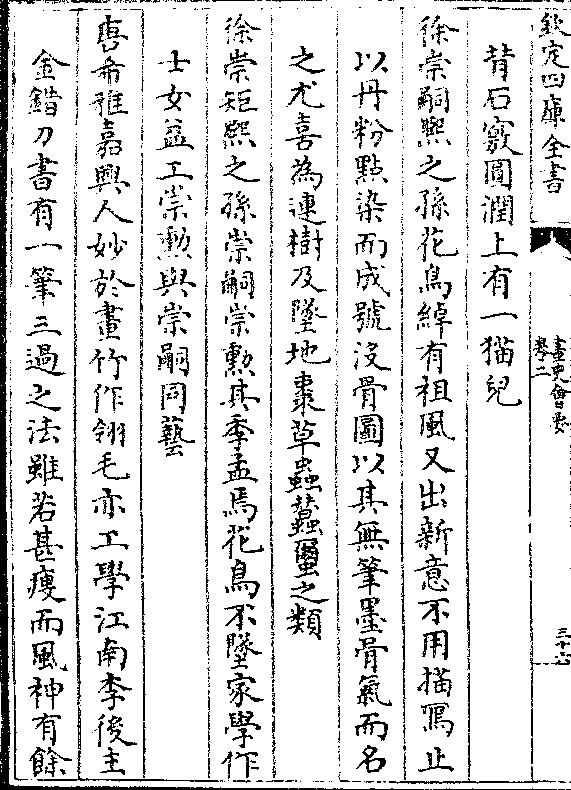 欽定四庫全書
畫史會要
卷二
三十六
背石竅圓潤上有一猫兒
徐崇嗣熙之孫花鳥綽有祖風又出新意不用描寫止
以丹粉點染而成號没骨圖以其無筆墨骨氣而名
之尤喜為連樹及墜地棗草蟲蠶蠒之類
徐崇矩熙之孫崇嗣崇勲其季孟焉花鳥不墜家學作
士女益工崇勲與崇嗣同藝
唐希雅嘉興人妙於畫竹作翎毛亦工學江南李後主
金錯刀書有一筆三過之法雖若甚瘦而風神有餘